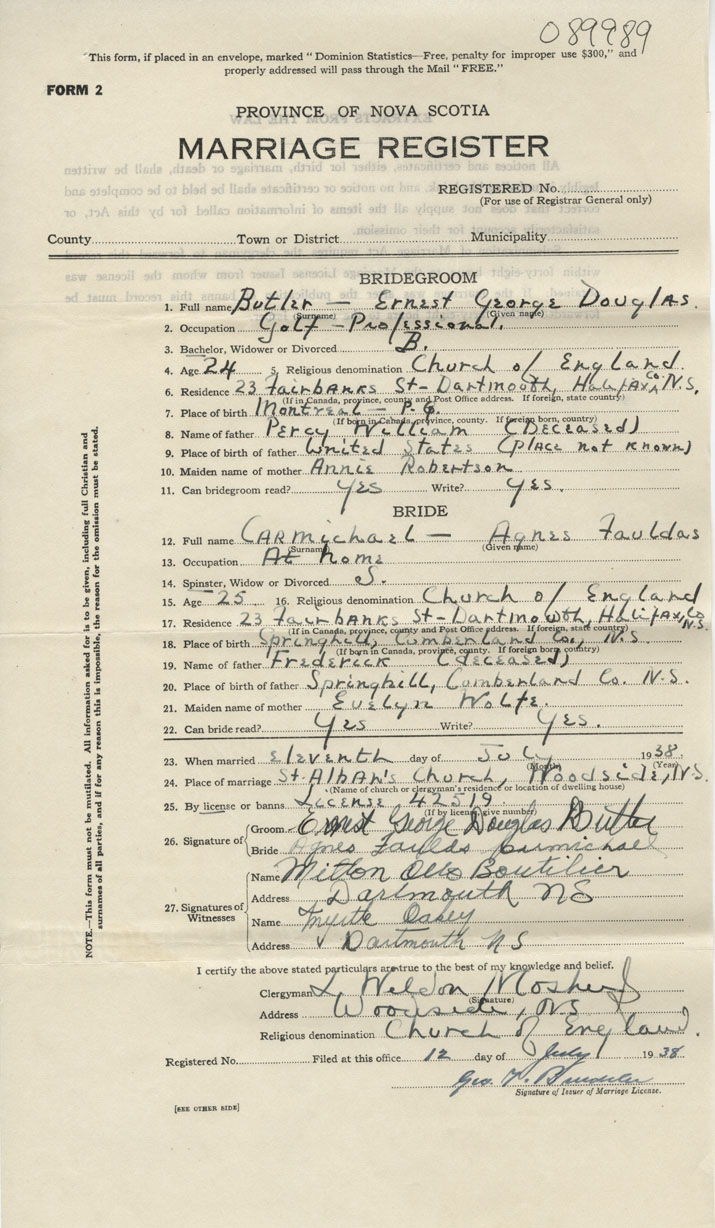 089989
"This form, if placed in an envelope, marked "Dominion Statistics—Free, penalty for improper use $300," and
properly addressed will pass through the Mail "FREE."
FORM 2
PROVINCE OF NOVA SCOTIA
MARRIAGE REGISTER
REGISTERED No.
(For use of Registrar General only)
County Town or District Municipality
BRIDEGROOM
1. Full name Butler — Ernest George Douglas.
(Surname) (Given name)
2. Occupation Golf-Professional.
3. Bachelor, Widower or Divorced B.
4. Age 24 5. Religious denomination Church of England.
6. Residence 23 Fairbanks St-Dartmouth, Halifax Co N.S.
(If in Canada, province, county and Post Office address. If foreign, state country)
7. Place of birth Montreal — P.Q.
(If born in Canada, province, county. If foreign born, country)
8. Name of father Percy William (Deceased)
9. Place of birth of father United States (Place not known)
10. Maiden name of mother Annie Robertson
11. Can bridegroom read? Yes Write? Yes.
BRIDE
12. Full name Carmichael — Agnes Fauldas
(Surname) (Given name)
13. Occupation At home
14. Spinster, Widow or Divorced S.
15. Age 25 16. Religious denomination Church of England
17. Residence 23 Fairbanks St-Dartmowth, Halifax, Co N.S.
(If in Canada, province, county and Post Office address. If foreign, state country)
18. Place of birth Springhill, Cumberland Co., N.S.
(If born in Canada, province, county. If foreign born, country)
19. Name of father Frederick (deceased)
20. Place of birth of father Springhill, Cumberland Co. N.S.
21. Maiden name of mother Evelyn Wolfe.
22. Can bride read? Yes Write? Yes.
23. When married eleventh day of July 1938.
(Month) (Year)
24. Place of marriage St-Alban's Church, Woodside, N.S.
(Name of church or clergyman's residence or location of dwelling house)
25. By license or banns License, 42519
(If by license, give number)
26. Signature of Groom Ernest George Douglas Butler
Bride Agnes Faulds Carmichael
27. Signatures of Witnesses Name Milton Otto Boutilier
Address Dartmouth NS
Name Myrtle Oakey
Address Dartmouth NS
I certify the above stated particulars are true to the best of my knowledge and belief.
Clergyman L Weldon Mosher
(Signature)
Address Woodside, NS
Religious denomination Church of England.
Registered No. Filed at this office 12 day of July 1938
Geo.
Signature of Issuer of Marriage License.
[SEE OTHER SIDE]
NOTE.—This form must not be mutilated. All information asked for is to be given, including full Christian and
surnames of all parties, and if for any reason this is impossible, the reason for the omission must be stated.